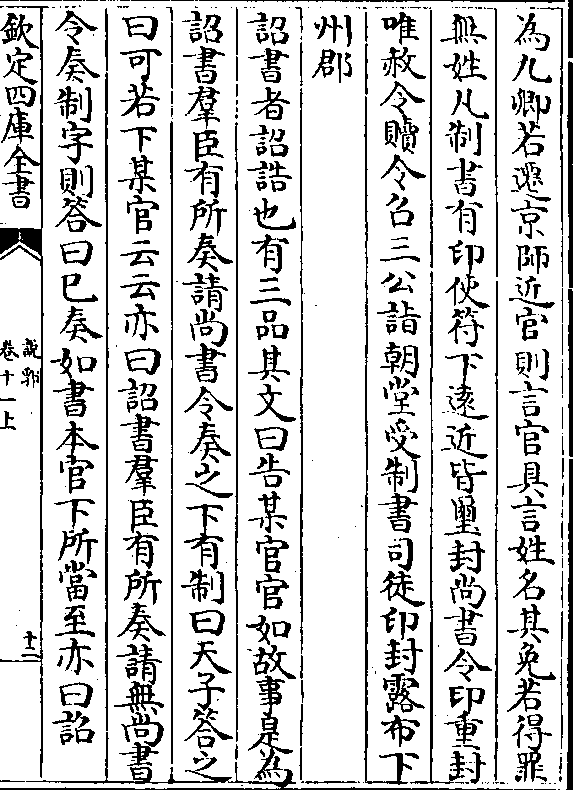 為九卿若遷京師近宫則言官具言姓名其免若得罪
無姓凡制書有印使符下逺近皆璽封尚書令印重封
唯赦令贖令召三公詣朝堂受制書司徒印封露布下
州郡
詔書者詔誥也有三品其文曰告某官官如故事是為
詔書羣臣有所奏請尚書令奏之下有制曰天子答之
曰可若下某官云云亦曰詔書羣臣有所奏請無尚書
令奏制字則答曰已奏如書本官下所當至亦曰詔
欽定四庫全書
說郛
卷十一上
十二